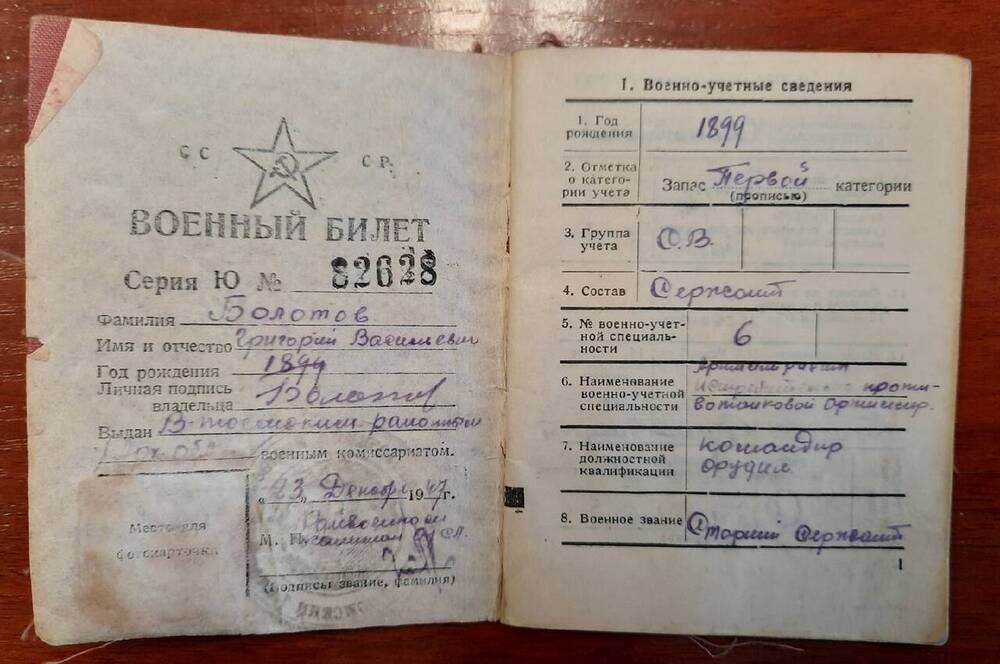 СС СР
ВОЕННЫЙ БИЛЕТ
Серия Ю № 82628
Фамилия Болотов
Имя и отчество Григорий Васильевич
Год рождения 1899
Личная подпись
владельца Болотов
Выдан В-тоемским районным
военным комиссариатом.
"23" Декабря 1947г.
М. П.
(Подписы звание, фамилия)
Место для
фотокарточки
I. Военно-учетные сведения
1. Год
рождения 1899
2. Отметка
о катего-
рии учета
Запас Первой категории
(прописью)
3. Группа
учета О.В.
4. Состав Сержант
5. № военно-учет-
ной специаль-
ности 6
6. Наименование
военно-учетной
специальности
проти-
вотанковой
7. Наименование
должностной
квалификации
командир
орудия
8. Военное звание Старший Сержант
1